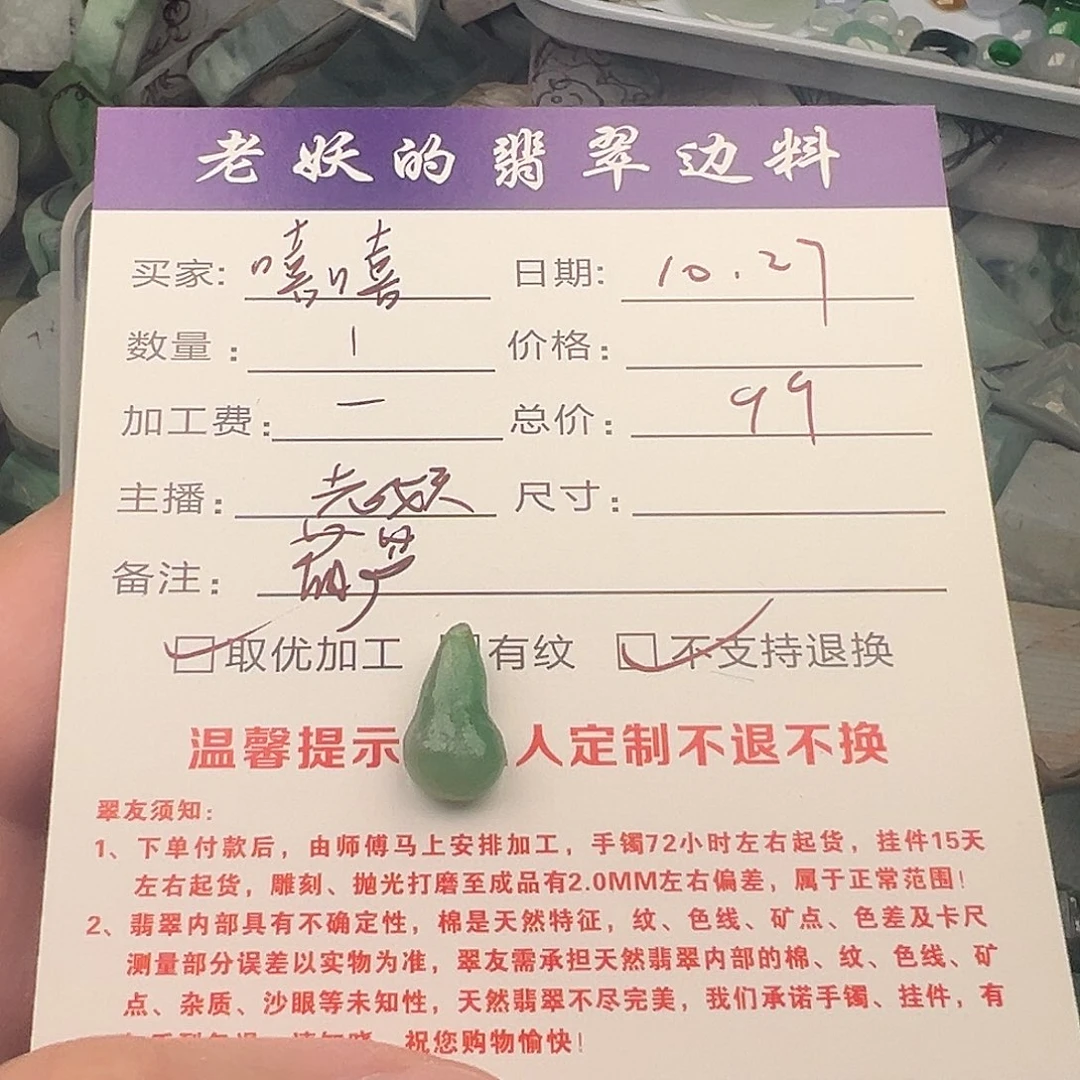 老妖的翡翠边料
买家: 嘻嘻 日期: 10.27
数量: 1 价格:
加工费: 一 总价: 99
主播: 老妖 尺寸:
备注: 葫芦
取优加工 有纹 不支持退换
温馨提示 人定制不退不换
翠友须知:
1、下单付款后，由师傅马上安排加工，手镯72小时左右起货，挂件15天
左右起货，雕刻、抛光打磨至成品有2.0MM左右偏差，属于正常范围！
2、翡翠内部具有不确定性，棉是天然特征，纹、色线、矿点、色差及卡尺
测量部分误差以实物为准，翠友需承担天然翡翠内部的棉、纹、色线、矿
点、杂质、沙眼等未知性，天然翡翠不尽完美，我们承诺手镯、挂件，有
祝您购物愉快！